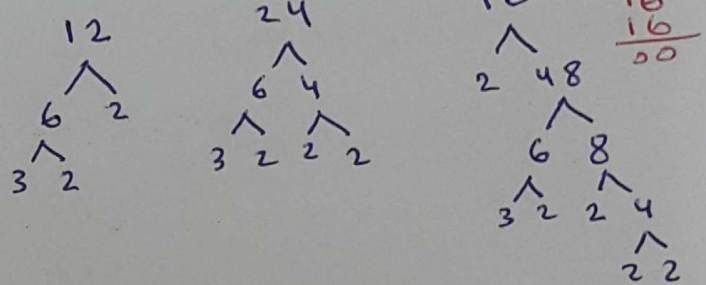 12
6 2
3 2
24
6 4
3 2 2 2
2 48
6 8
3 2 2 4
2 2
16
00